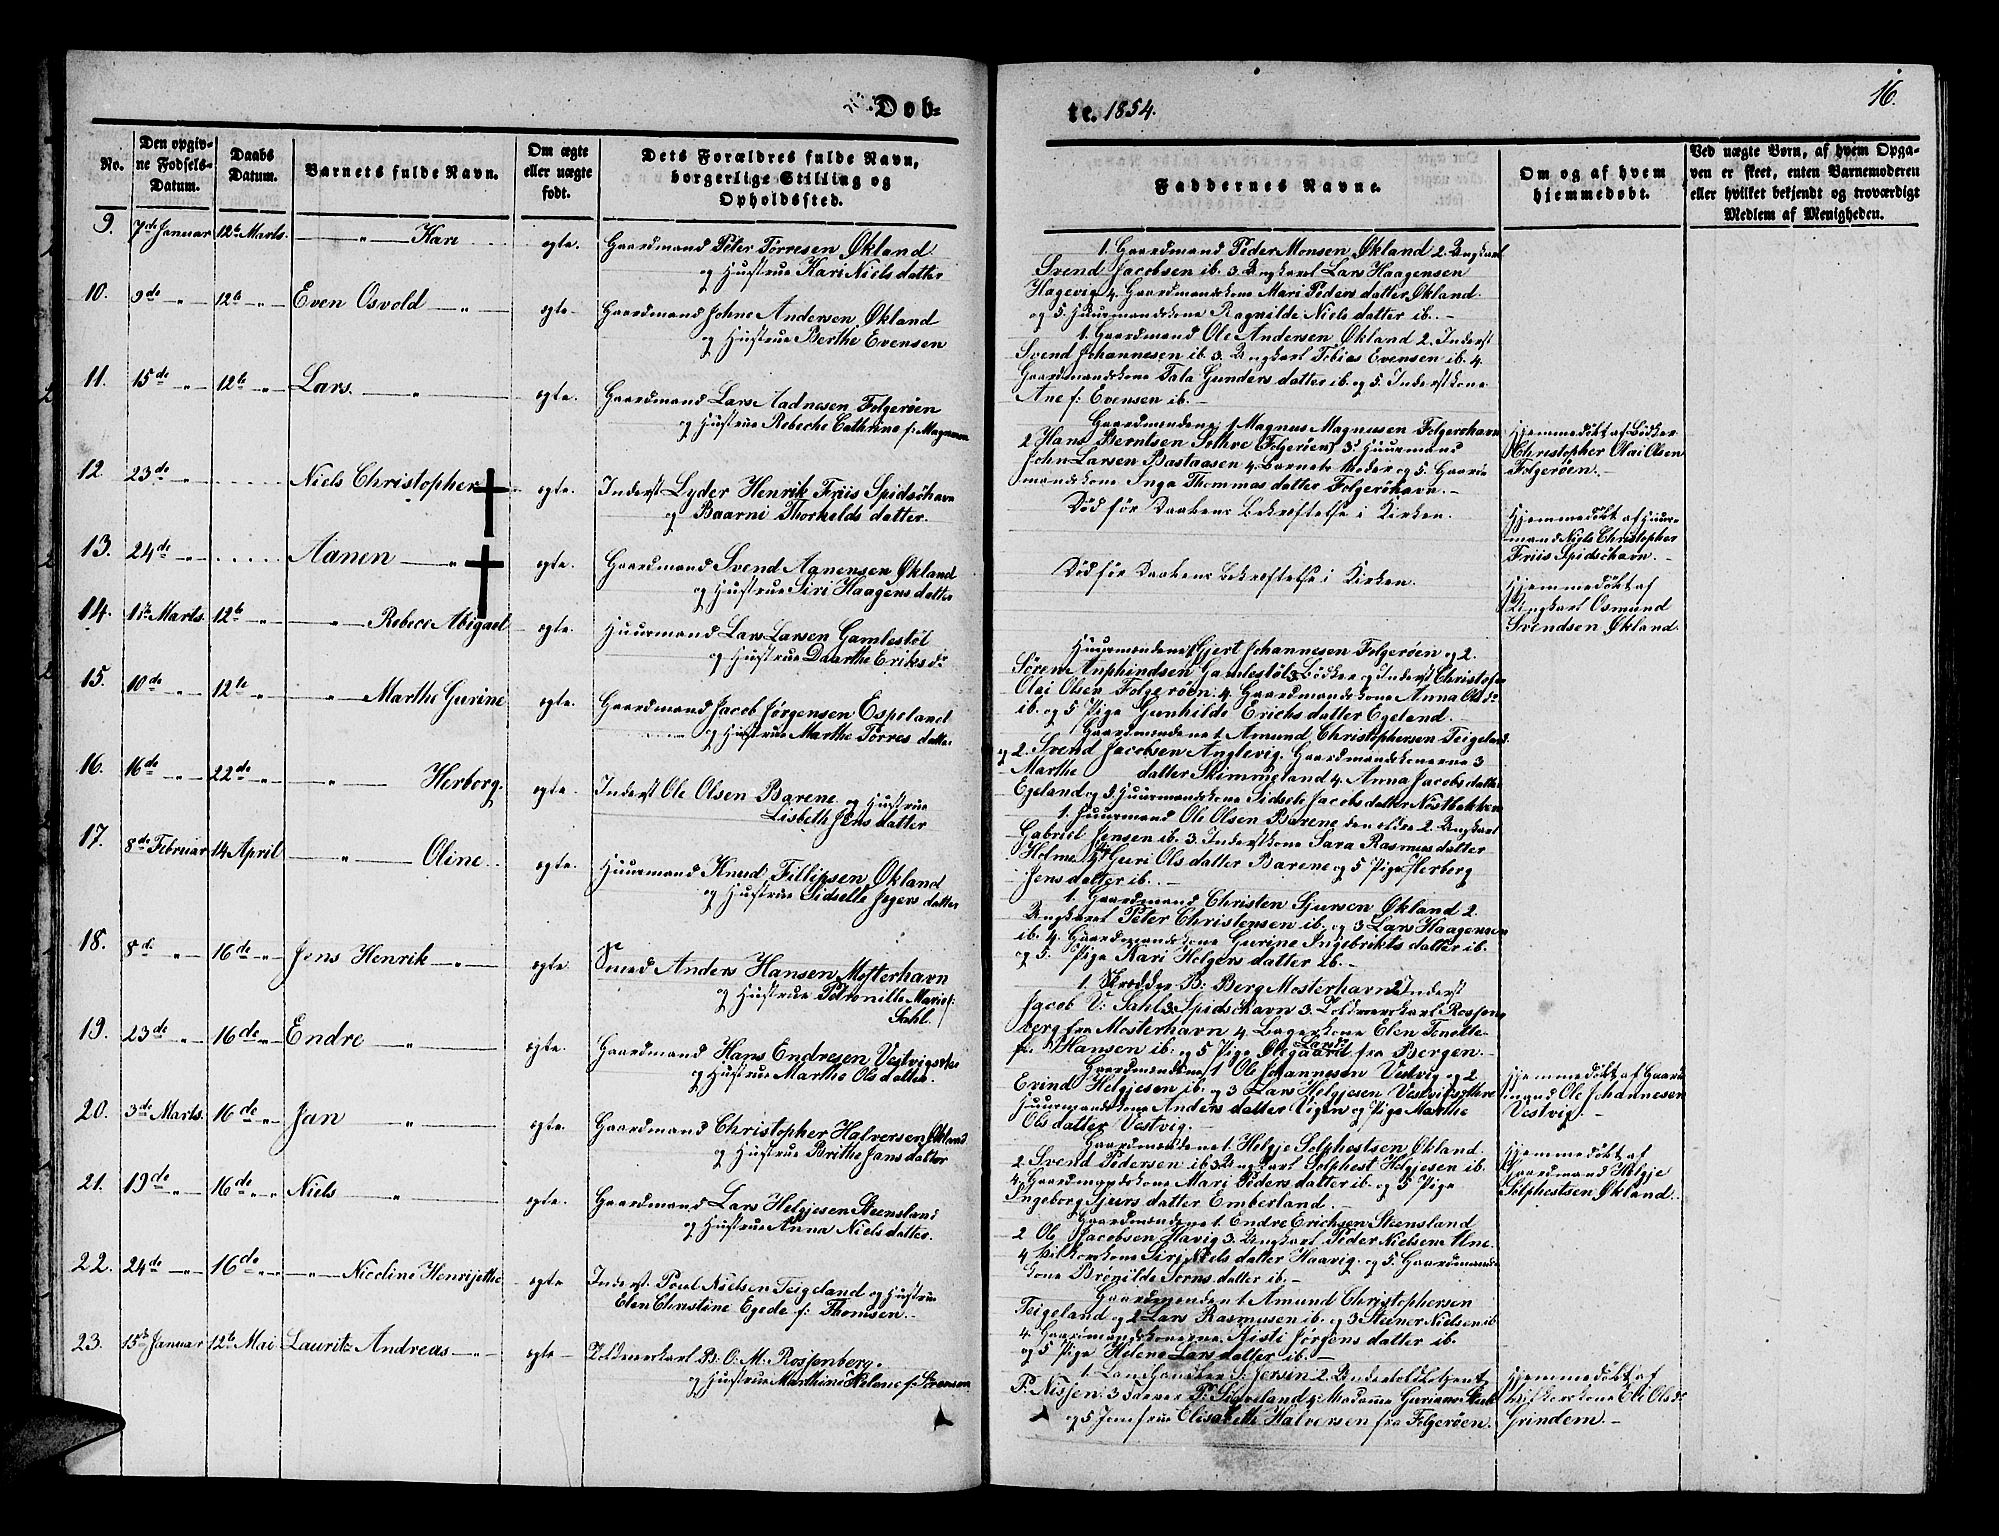 Døb-
te. 1854.
16.
No.
Den opgiv-
ne Fødsels-
Datum.
Daabs
Datum.
Barnets fulde Navn.
Om ægte
eller uægte
født.
Dets Forældres fulde Navn,
borgerlige Stilling og
Opholdssted.
Faddernes Navne.
Om og af hvem
hjemmedøbt.
Ved uægte Børn, af hvem Opga-
ven er skeet, enten Barnemoderen
eller hvilket bekjendt og troværdigt
Medlem af Menigheden.
9. 7de Januar 12te Marts. — „ — Kari ægte. Gaardmand Peter Tørresen Økland
og Hustrue Kari Nielsdatter
1. Gaardmand Peder Monsen Økland 2. Ungkarl
Svend Jacobsen ib. 3. Ungkarl Lars Haagensen
Hagevig 4. Gaardmandskone Mari Pedersdatter Økland
og 5. Huusmandskone Ragnilde Nielsdatter ib. —
10. 9de „ 12te „ Even Osvold — „ — ægte Gaardmand Johne Andersen Økland
og Hustrue Berthe Evensen
1. Gaardmand Ole Andersen Økland 2. Inderst
Svend Johannesen ib. 3. Ungkarl Tobias Evensen ib. 4.
Gaardmandskone Tala Gundersdatter ib. og 5. Inderstkone
Ane f: Evensen ib. —
11. 15de „ 12te „ Lars. — „ ægte. Gaardmand Lars Aadnesen Folgerøen
og Hustrue Rebeche Cathrine f: Magnesen
Gaardmændene 1 Magnus Magnusen Folgerøhavn
2 Hans Berntsen Sethre (Folgerøen) 3. Huusmand
John Larsen Bastaasen 4. Barnets Moder og 5. Gaard-
mandskone Inga Thommasdatter Folgerøhavn. —
Hjemmedøbt af Bødker
Christopher Olai Olsen
Folgerøen. —
12. 23de „ Niels Christopher ægte. Inderst Lyder Henrik Friis Spidsøhavn
og Baarni Thorkeldsdatter.
Død før Daabens Bekræftelse i Kirken.
Hjemmedøbt af Huus-
mand Niels Christopher
Friis Spidsøhavn. —
13. 24de „ Aanen — „ ægte. Gaardmand Svend Aanensen Økland
og Hustrue Siri Haagensdatter
Død før Daabens Bekræftelse i Kirken.
Hjemmedøbt af
Ungkarl Osmund
Svendsen Økland.
14. 1ste Marts. 12te „ — „ — Rebece Abigael ægte. Huusmand Lars Larsen Gamlestøl
og Hustrue Daarthe Eriksdr
Huusmændene 1 Gjert Johannesen Folgerøen og 2.
Søren Anphindsen Gamlestøl 3. Bødker og Inderst Christofer
Olai Olsen Folgerøen. 4. Gaardmandskone Anna Olsdr
ib. og 5 Pige Gunhilde Erichsdatter Egeland. —
15. 10de „ 12te „ — „ — Marthe Gurine ægte. Gaardmand Jacob Jørgensen Espeland
og Hustrue Marthe Tørresdatter
Gaardmændene 1. Amund Christophersen Teigeland
og 2. Svend Jacobsen Anglevig. Gaardmandskonerne 3
Marthe datter Skimmeland 4. Anna Jacobsdatter
Egeland og 5. Huusmandskone Sidsele Jacobsdatter Nøstbakken
16. 16de „ 22de „ — „ — Herborg. ægte. Inderst Ole Olsen Barene og Hustrue
Lisbeth Jensdatter
1. Huusmand Ole Olsen Barene den ældre 2. Ungkarl
Gabriel Jensen ib. 3. Inderstkone Sara Rasmusdatter
Holme 4. Guri Olsdatter Barene og 5 Pige Herborg
Jensdatter ib. —
17. 8de Februar 14 April — „ — Oline ægte. Huusmand Knud Fillipsen Økland
og Hustrue Sidselle Jegersdatter
1. Gaardmand Christen Sjursen Økland 2.
Ungkarl Peter Christensen ib. og 3 Lars Haagensen
ib. 4. Gaardmandskone Gurine Ingebriktsdatter ib.
og 5. Pige Kari Helgersdatter ib. —
18. 8de „ 16de „ Jens Henrik — „ — ægte. Smed Anders Hansen Mosterhavn
og Hustrue Petronille Marie f:
Sahl.
1. Skrædder B: Berg Mosterhavn 2 Inderst
Jacob V: Sahl Spidsøhavn 3. Toldværskarl Rossen-
berg fra Mosterhavn 4 Bagerkone Elen Tonette
f: Hansen ib. og 5 Pige Olegaard Larsdr fra Bergen. —
19. 23de „ 16de „ Endre — „ — ægte. Gaardmand Hans Endresen Vestvig
og Hustrue Marthe Olsdatter.
Gaardmændene 1 Ole Johannesen Vestvig og 2
Erind Helgjesen ib. og 3 Lars Helgjesen Vestvig
Huusmandskone Andersdatter Vigen og Pige Marthe
Olsdatter Vestvig. —
Hjemmedøbt af Gaard-
mand Ole Johannesen
Vestvig. —
20. 3de Marts. 16de „ Jan — „ — ægte. Gaardmand Christopher Halversen Økland
og Hustrue Brithe Jansdatter
Gaardmændene 1. Helgje Solphestsen Økland.
2 Svend Pedersen ib. 3 Ungkarl Solphest Helgjesen ib.
4. Gaardmandskone Mari Pedersdatter ib. og 5 Pige
Ingeborg Sjursdatter Emberland. —
Hjemmedøbt af
Gaardmand Helgje
Solphestsen Økland.
21. 19de „ 16de „ Niels „ ægte. Gaardmand Lars Helgjesen Steensland
og Hustrue Anna Nielsdatter.
Gaardmændene 1. Endre Erichsen Steensland
2 Ole Jacobsen Havig 3. Ungkarl Peder Nielsen
4 Siri Nielsdatter Haavig og 5. Gaardmands-
kone Brønilde Sørnsdatter ib. —
22. 24de „ 16de „ — „ — Nicoline Henrijethe ægte Inderst Poul Nielsen Teigeland og Hustrue
Elen Christine Egede f: Thomsen.
Gaardmændene 1 Amund Christophersen
Teigeland og 2 Lars Rasmusen ib. og 3 Steiner Nielsen ib
4. Gaardmandskonerne Aisti Jørgensdatter ib.
og 5 Pige Helene Larsdatter ib. —
23. 15de Januar 12te Mai Lauritz Andreas — „ — ægte — Toldværskarl B: O: M: Rossenberg.
og Hustrue Marthine Helene f: Sørensen
1. Landhandler S: Jersin 2. Underlods
P: Nissen. 3 Farver P: Siggeland 4. Madamme Guriane
og 5 Jomfrue Elisabeth Halversen fra Folgerøen.
Hjemmedøbt af
Eli Olsdr
Grindem. —